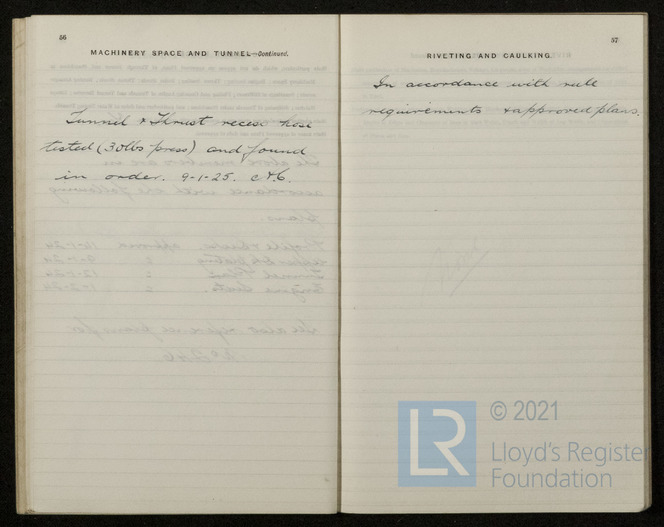 56
MACHINERY SPACE AND TUNNEL—Continued.
Tunnel & Thrust recess hose
tested (30lbs press) and found
in order. 9-1-25.
57
RIVETING AND CAULKING.
In accordance with rule
requirements & approved plans.
LR
© 2021
Lloyd's Register
Foundation